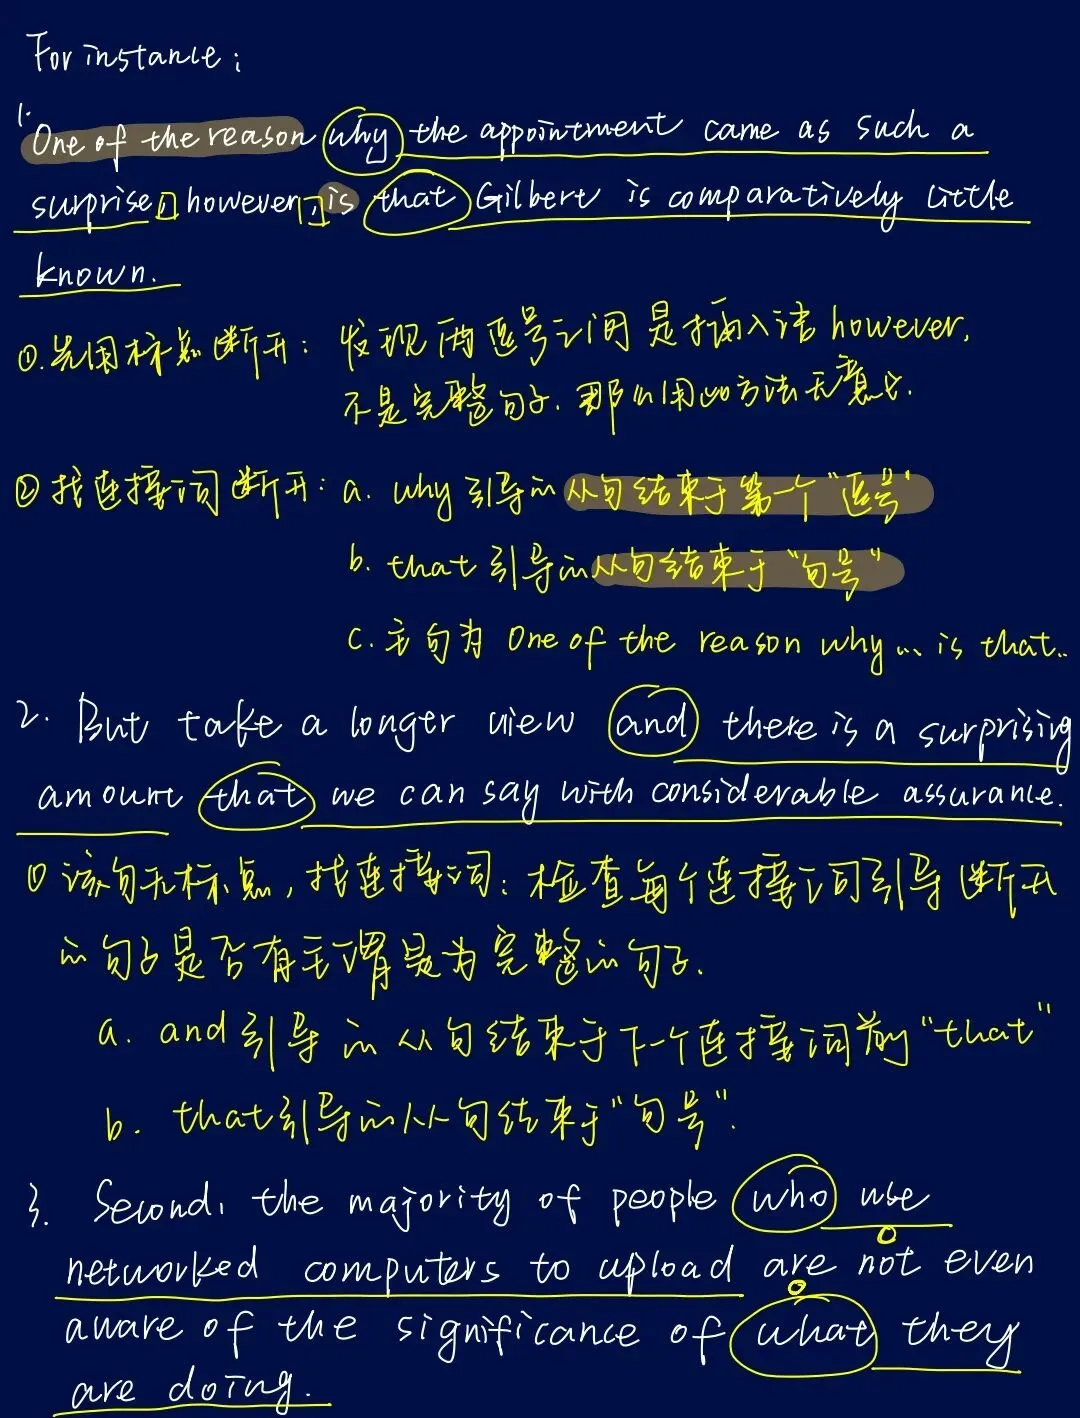 For instance:
1. One of the reason why the appointment came as such a
surprise, however, is that Gilbert is comparatively little
known.
①.先用标点断开: 发现两逗号之间是插入语however,
不是完整句子. 那么用此方法无意义.
② 找连接词断开: a. why 引导的从句结束于第一个"逗号"
b. that 引导的从句结束于"句号"
c. 主句为 One of the reason why... is that..
2. But take a longer view and there is a surprising
amount that we can say with considerable assurance.
① 该句无标点, 找连接词: 检查每个连接词引导断开
的句子是否有主谓是为完整的句子.
a. and 引导的从句结束于下一个连接词前"that"
b. that引导的从句结束于"句号".
3. Second, the majority of people who use
networked computers to upload are not even
aware of the significance of what they
are doing.